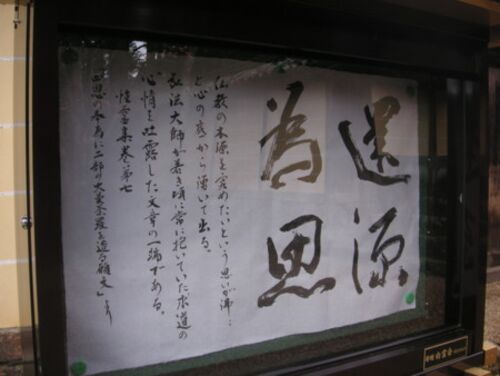 還源
為思
仏教の本源を究めたいという思いが沸…
と心の底から湧いて出る。
弘法大師が若き頃に常に抱いていた求道の
心情を吐露した文章の一端である。
性霊集巻第七
「四恩の奉為に二部の大曼荼羅を造る願文」より